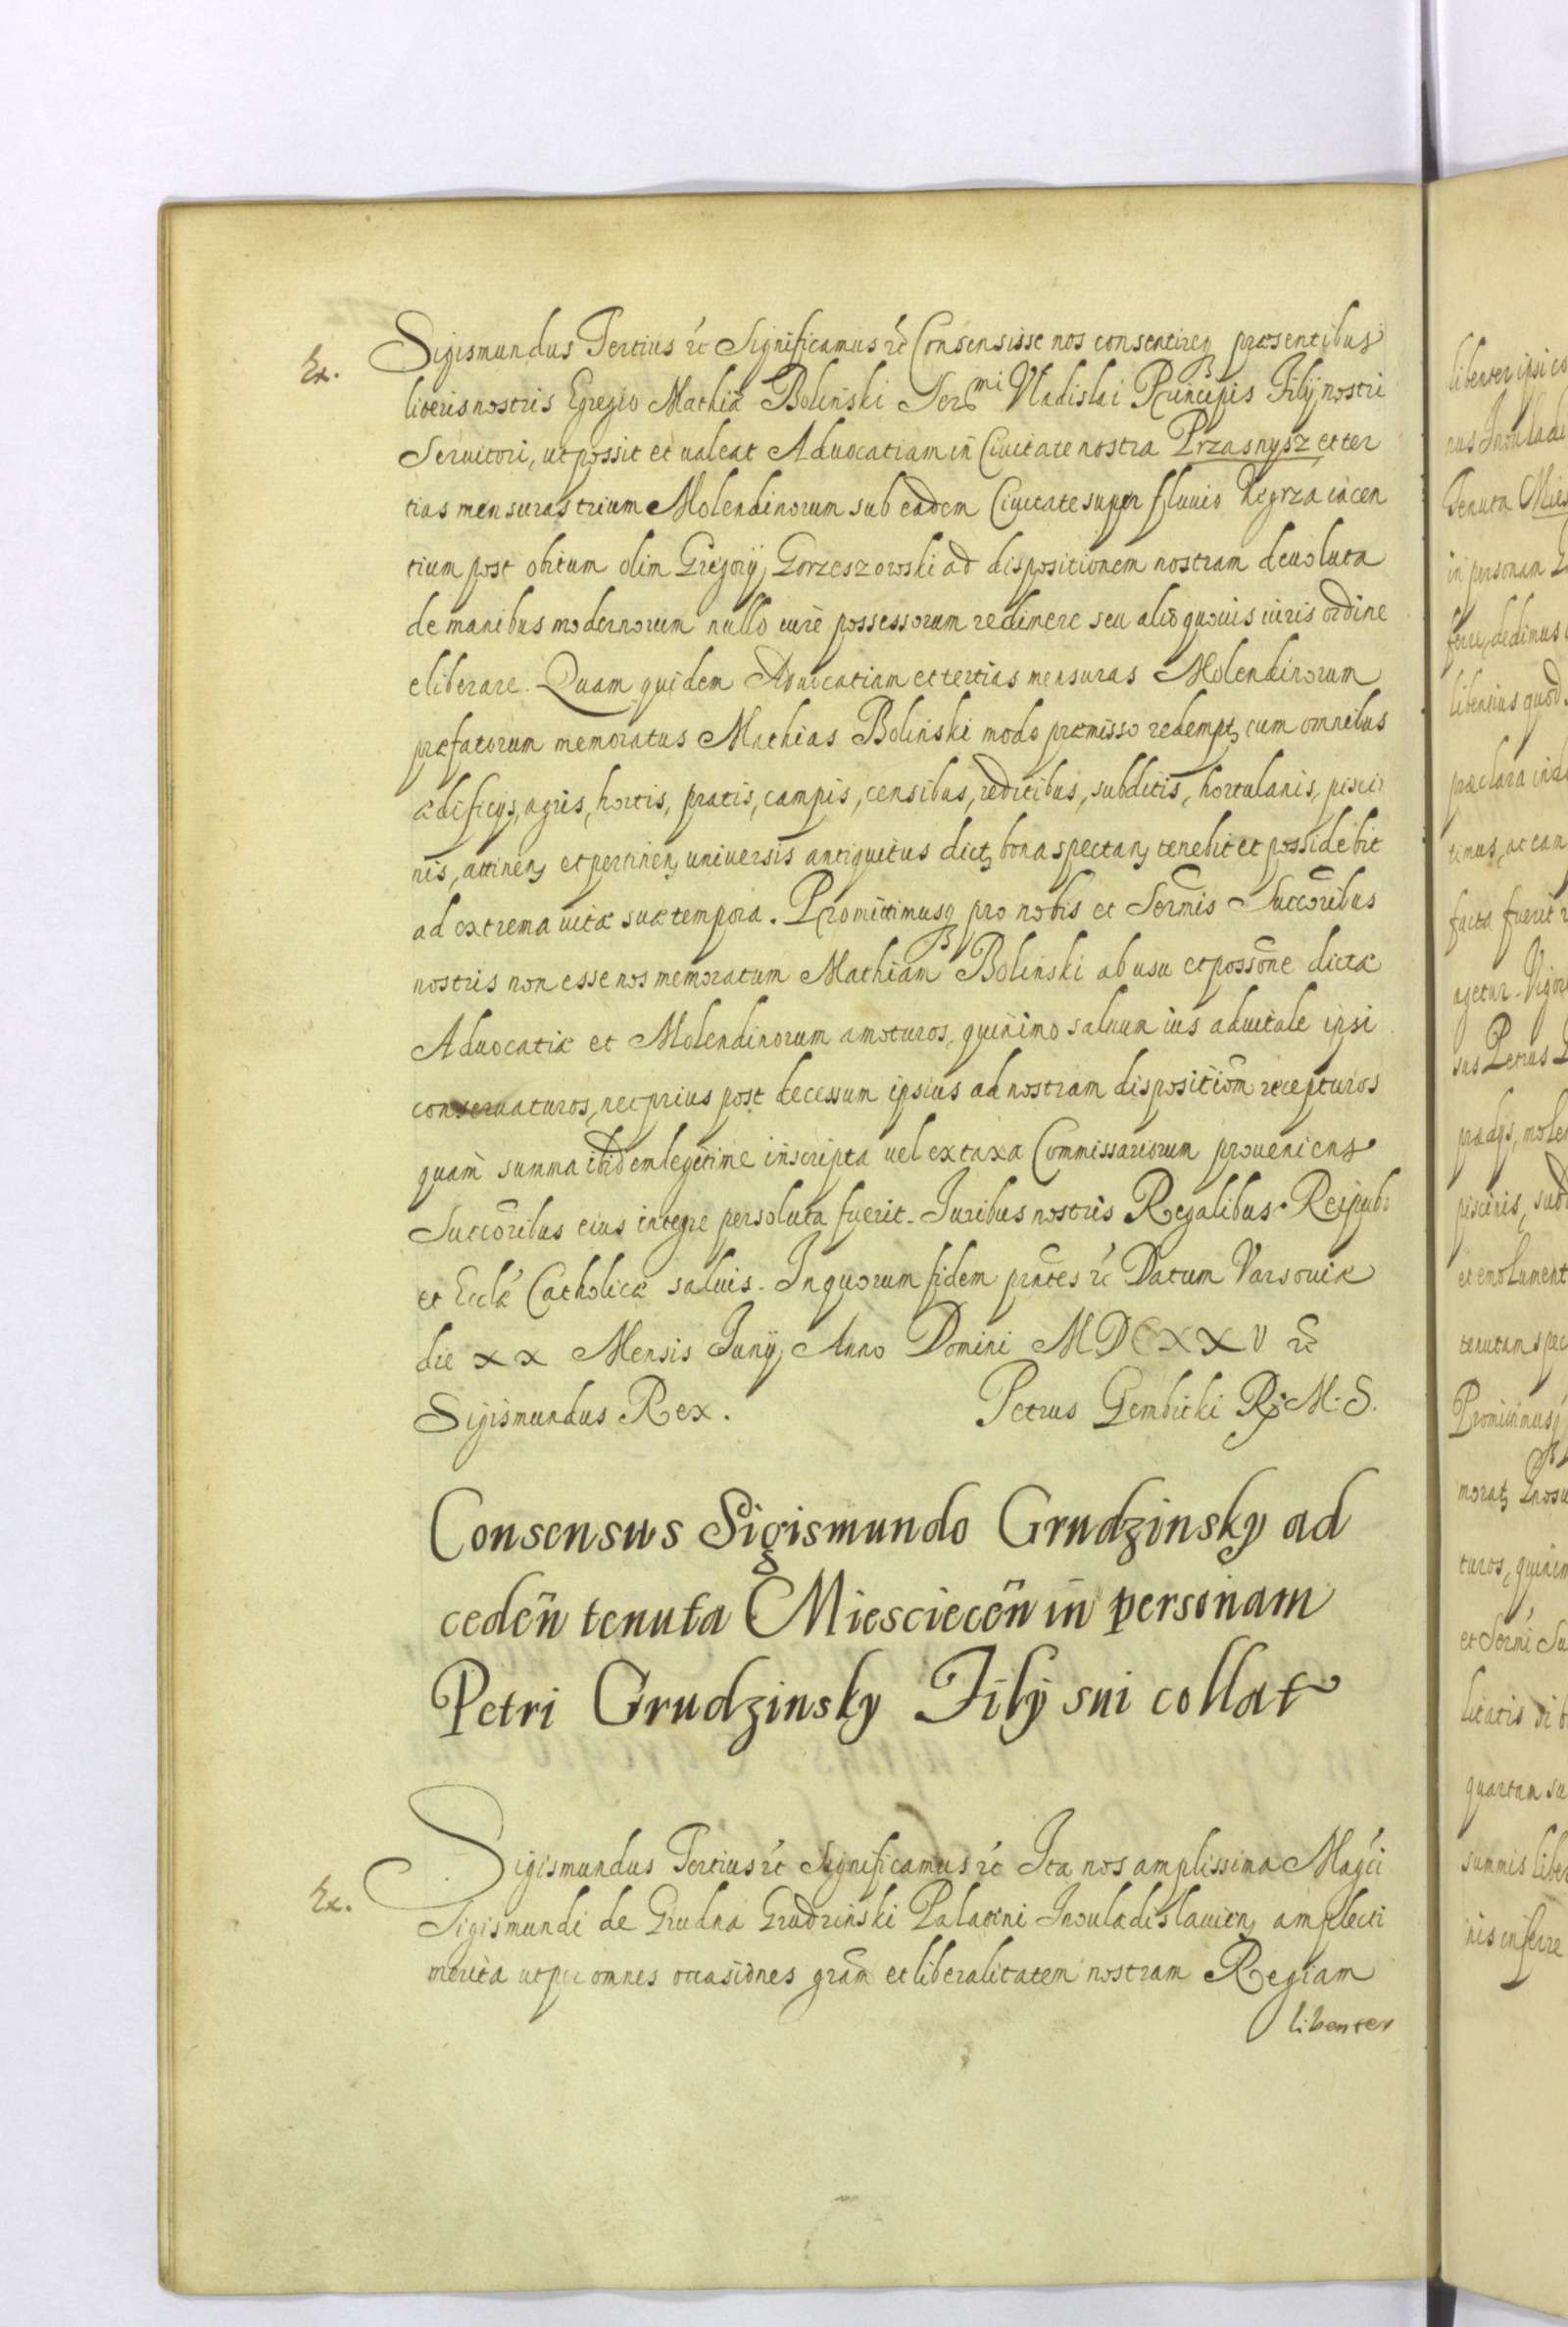 Ex.
Sigismundus Tertius etc Significamus etc Consensisse nos consentireq præsentibus
literis nostris Egregio Mathiæ Boliński Ser^mi Vladislai Principis Filij nostri
Seruitori, ut possit et ualeat Aduocatiam in Ciuitate nostra Przasnysz et ter
tias mensuras trium Molendinorum sub eadem Ciuitate super fluuio Hegrza iacen
tium post obitum olim Gregorij Gorzeszowski ad dispositionem nostram deuoluta
de manibus modernorum nullo iure possessorum redimere seu alio quouis iuris ordine
eliberare. Quam quidem Aduocatiam et tertias mensuras Molendinorum
præfatorum memoratus Mathias Boliński modo præmisso redempt, cum omnibus
ædificijs, agris, hortis, pratis, campis, censibus, reditibus, subditis, hortulanis, pisci
nis, attinen, et pertinen, uniuersis antiquitus dict, bona spectan, tenebit et possidebit
ad extrema uitæ suæ tempora. Promittimusq pro nobis et Sermis Succoribus
nostris non esse nos memoratum Mathiam Boliński ab usu et possone dictæ
Aduocatiæ et Molendinorum amoturos, quinimo saluum ius aduitale ipsi
conseruaturos, nec prius post decessum ipsius ad nostram dispositiom recepturos
quam summa ibidem legitime inscripta uel ex taxa Commissariorum proueniens
Succoribus eius integre persoluta fuerit. Juribus nostris Regalibus Reipub:
et Ecclæ Catholicæ saluis. In quorum fidem prntes etc Datum Varsouiæ
die xx Mensis Junij Anno Domini MDCXXV etc
Sigismundus Rex. Petrus Gembicki R: M: S.
Consensus Sigismundo Grudzinsky ad
ceden tenuta Miesciecen in personam
Petri Grudzinsky Filij sui collat
Ex.
Sigismundus Tertius etc Significamus etc Ita nos amplissima Magci
Sigismundi de Grudna Grudziński Palatini Inouladislauien, amplecti
merita ut per omnes occasiones gram et liberalitatem nostram Regiam
libenter